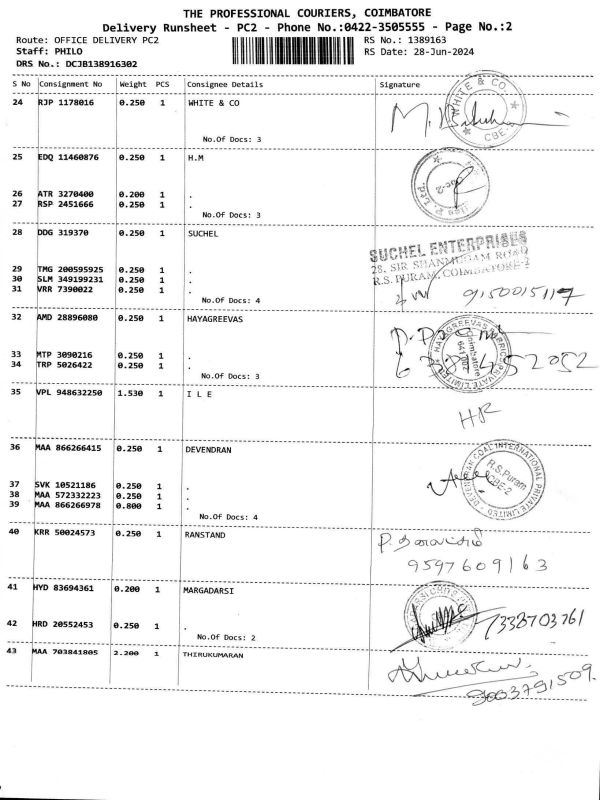 THE PROFESSIONAL COURIERS, COIMBATORE
Delivery Runsheet - PC2 - Phone No.:0422-3505555 - Page No.:2
Route: OFFICE DELIVERY PC2 RS No.: 1389163
Staff: PHILO RS Date: 28-Jun-2024
DRS No.: DCJB138916302
S No Consignment No Weight PCS Consignee Details Signature
24 RJP 1178016 0.250 1 WHITE & CO
WHITE & CO
CBE
No.Of Docs: 3
25 EDQ 11460876 0.250 1 H.M
26 ATR 3270400 0.200 1 .
27 RSP 2451666 0.250 1 .
No.Of Docs: 3
28 DDG 319370 0.250 1 SUCHEL
SUCHEL ENTERPRISES
28, SIR SHANMUGAM ROAD
R.S. PURAM, COIMBATORE-2
29 TMG 200595925 0.250 1 .
30 SLM 349199231 0.250 1 .
31 VRR 7390022 0.250 1 .
9150015117
No.Of Docs: 4
32 AMD 28896080 0.250 1 HAYAGREEVAS
33 MTP 3090216 0.250 1 .
34 TRP 5026422 0.250 1 .
No.Of Docs: 3
35 VPL 948632250 1.530 1 I L E
HR
36 MAA 866266415 0.250 1 DEVENDRAN
DEVENDRAN COAL INTERNATIONAL PRIVATE LIMITED
R.S.Puram
CBE-2
37 SVK 10521186 0.250 1 .
38 MAA 572332223 0.250 1 .
39 MAA 866266978 0.800 1 .
No.Of Docs: 4
40 KRR 50024573 0.250 1 RANSTAND
9597609163
41 HYD 83694361 0.200 1 MARGADARSI
42 HRD 20552453 0.250 1 .
7338703761
No.Of Docs: 2
43 MAA 703841805 2.200 1 THIRUKUMARAN
9003791509.